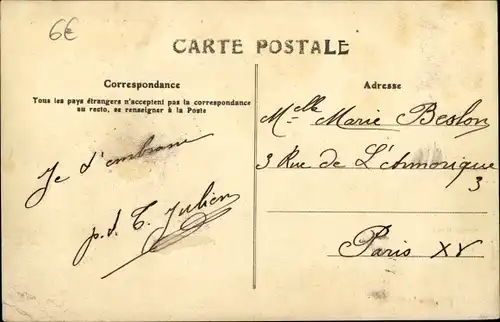 6€
CARTE POSTALE
Correspondance
Tous les pays étrangers n'acceptent pas la correspondance
au recto, se renseigner à la Poste
Je t'embrasse
p.d. C. Julien
Adresse
Melle Marie Beslon
3 Rue de L'Armorique
3
Paris XV